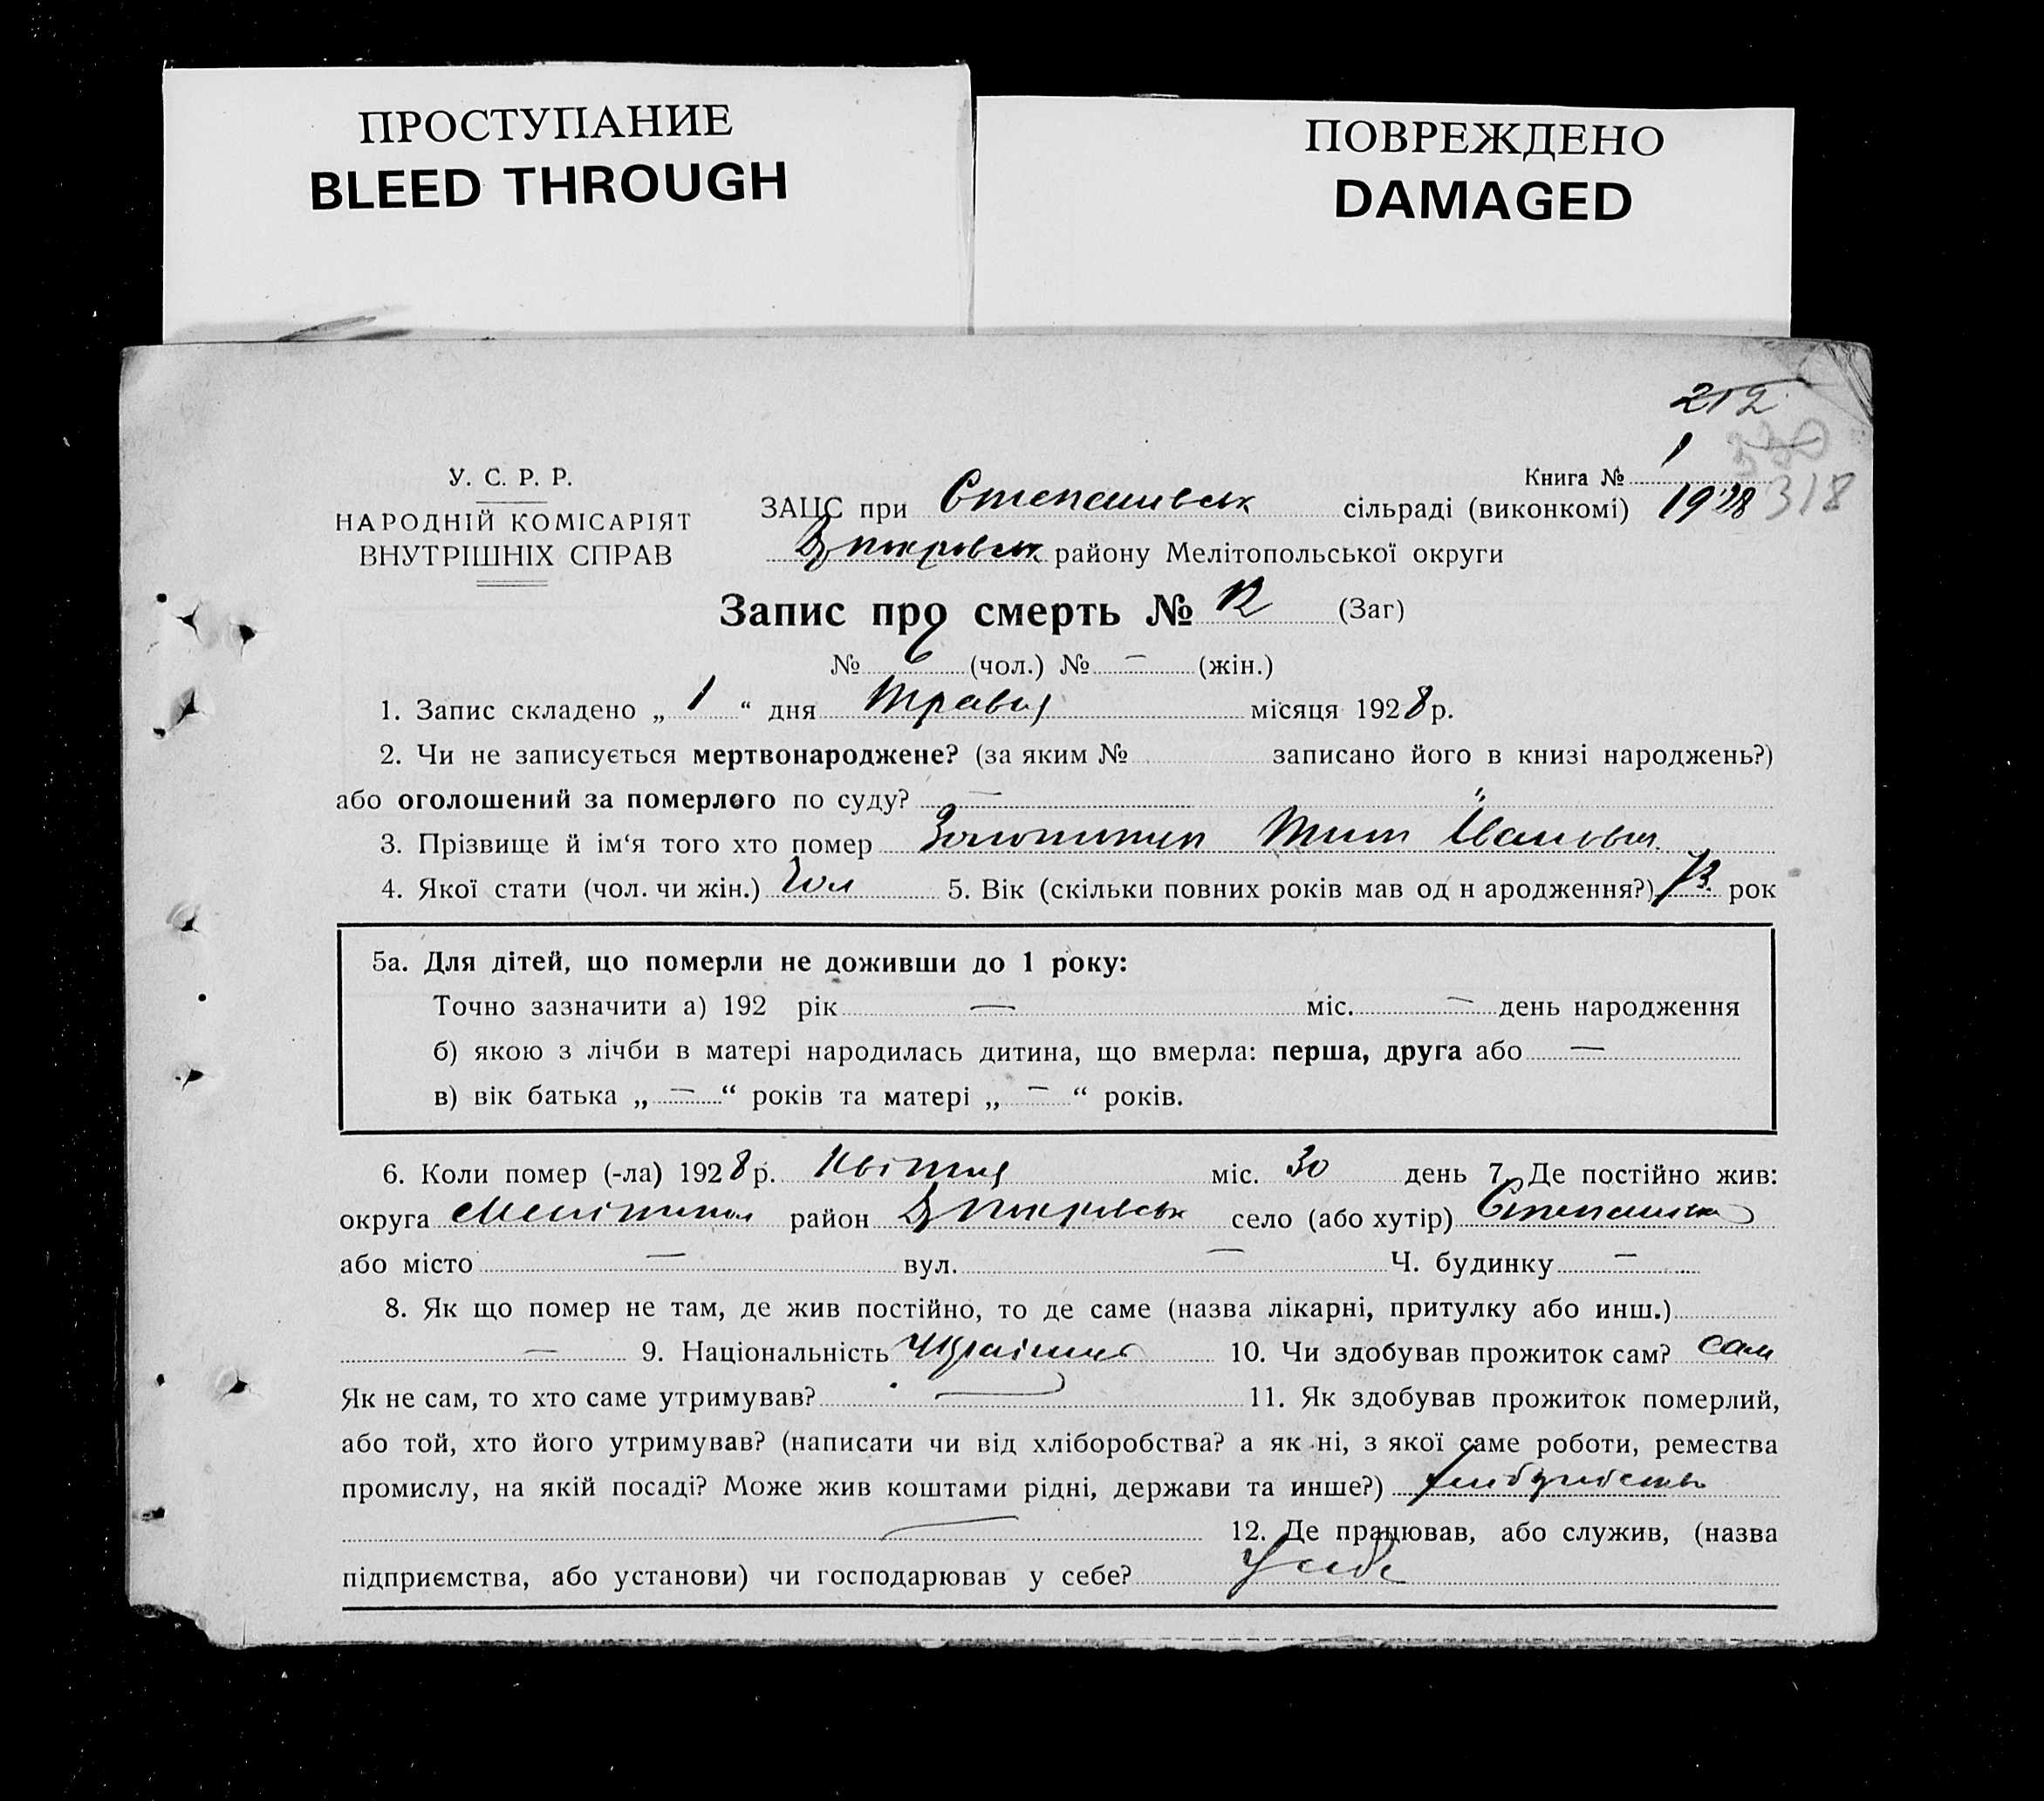 ПРОСТУПАНИЕ
BLEED THROUGH
ПОВРЕЖДЕНО
DAMAGED
212
330
318
У. С. Р. Р.
НАРОДНІЙ КОМІСАРІЯТ
ВНУТРІШНІХ СПРАВ
Книга № 1
ЗАЦС при Степанівськ сільраді (виконкомі) 1928
покровськ району Мелітопольської округи
Запис про смерть № 12 (Заг)
№ 6 (чол.) № — (жін.)
1. Запис складено „ 1 “ дня Травня місяця 1928 р.
2. Чи не записується мертвонароджене? (за яким № записано його в книзі народжень?)
або оголошений за померлого по суду? — "
3. Прізвище й ім‘я того хто помер Тит Іванович
4. Якої стати (чол. чи жін.) Чол 5. Вік (скільки повних років мав од н ародження?) 73 рок
5а. Для дітей, що померли не доживши до 1 року:
Точно зазначити а) 192 рік — міс. — день народження
б) якою з лічби в матері народилась дитина, що вмерла: перша, друга або —
в) вік батька „ — “ років та матері „ — “ років.
6. Коли помер (-ла) 1928 р. Квітня міс. 30 день 7. Де постійно жив:
округа Мелітопол район покровськ село (або хутір) Степанівка
або місто — вул. — Ч. будинку —
8. Як що помер не там, де жив постійно, то де саме (назва лікарні, притулку або инш.)
— 9. Національність Україниц 10. Чи здобував прожиток сам? сам
Як не сам, то хто саме утримував? — 11. Як здобував прожиток померлий,
або той, хто його утримував? (написати чи від хліборобства? а як ні, з якої саме роботи, ремества
промислу, на якій посаді? Може жив коштами рідні, держави та инше?) хліборобство
— 12. Де працював, або служив, (назва
підприємства, або установи) чи господарював у себе? У себе